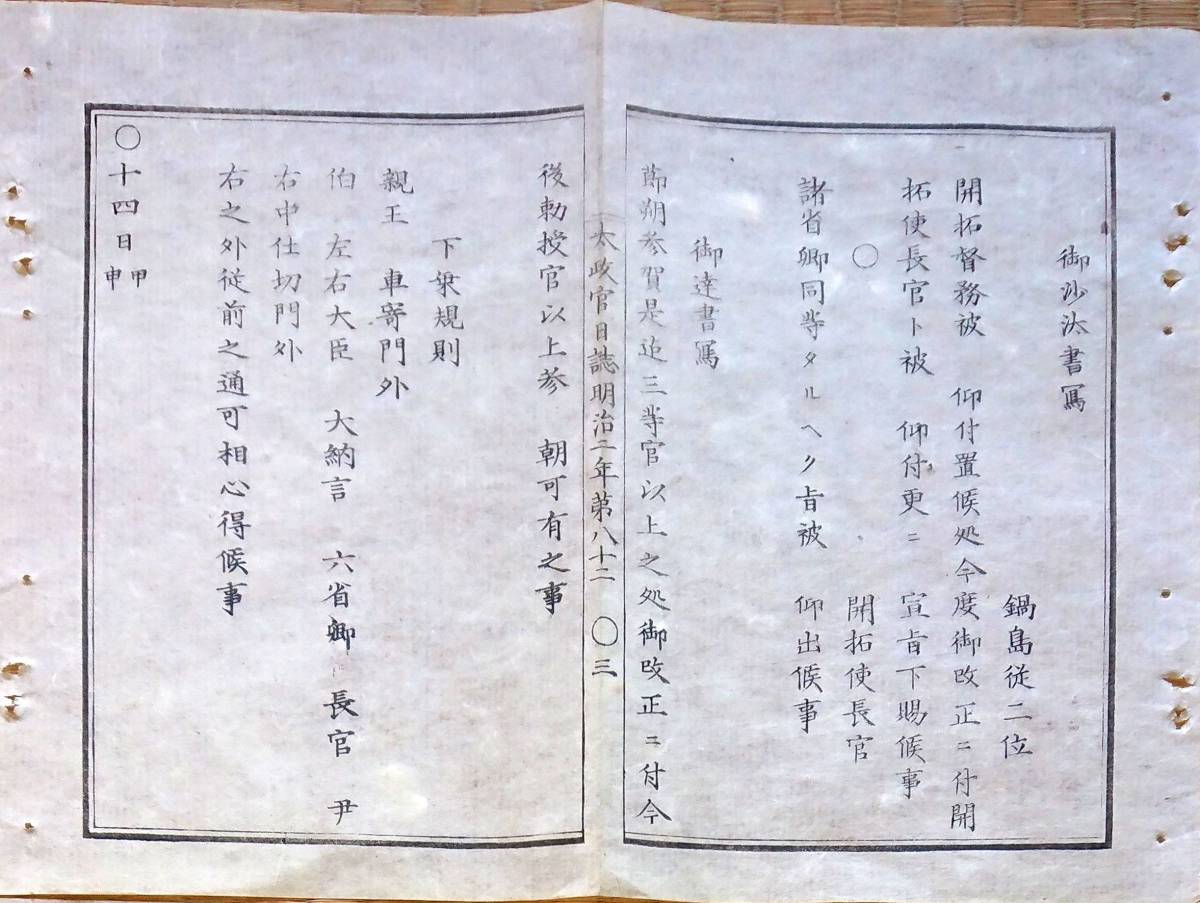 御沙汰書寫
鍋島従二位
開拓督務被　仰付置候処今度御改正ニ付開
拓使長官ト被　仰付更ニ　宣旨下賜候事
〇　開拓使長官
諸省卿同等タルヘク旨被　仰出候事
御達書寫
節朔参賀是迄三等官以上之処御改正ニ付今
太政官日誌明治二年第八十二　〇三
後勅授官以上参　朝可有之事
下乗規則
親王　車寄門外
伯　左右大臣　大納言　六省卿　長官　尹
右中仕切門外
右之外従前之通可相心得候事
〇十四日甲申